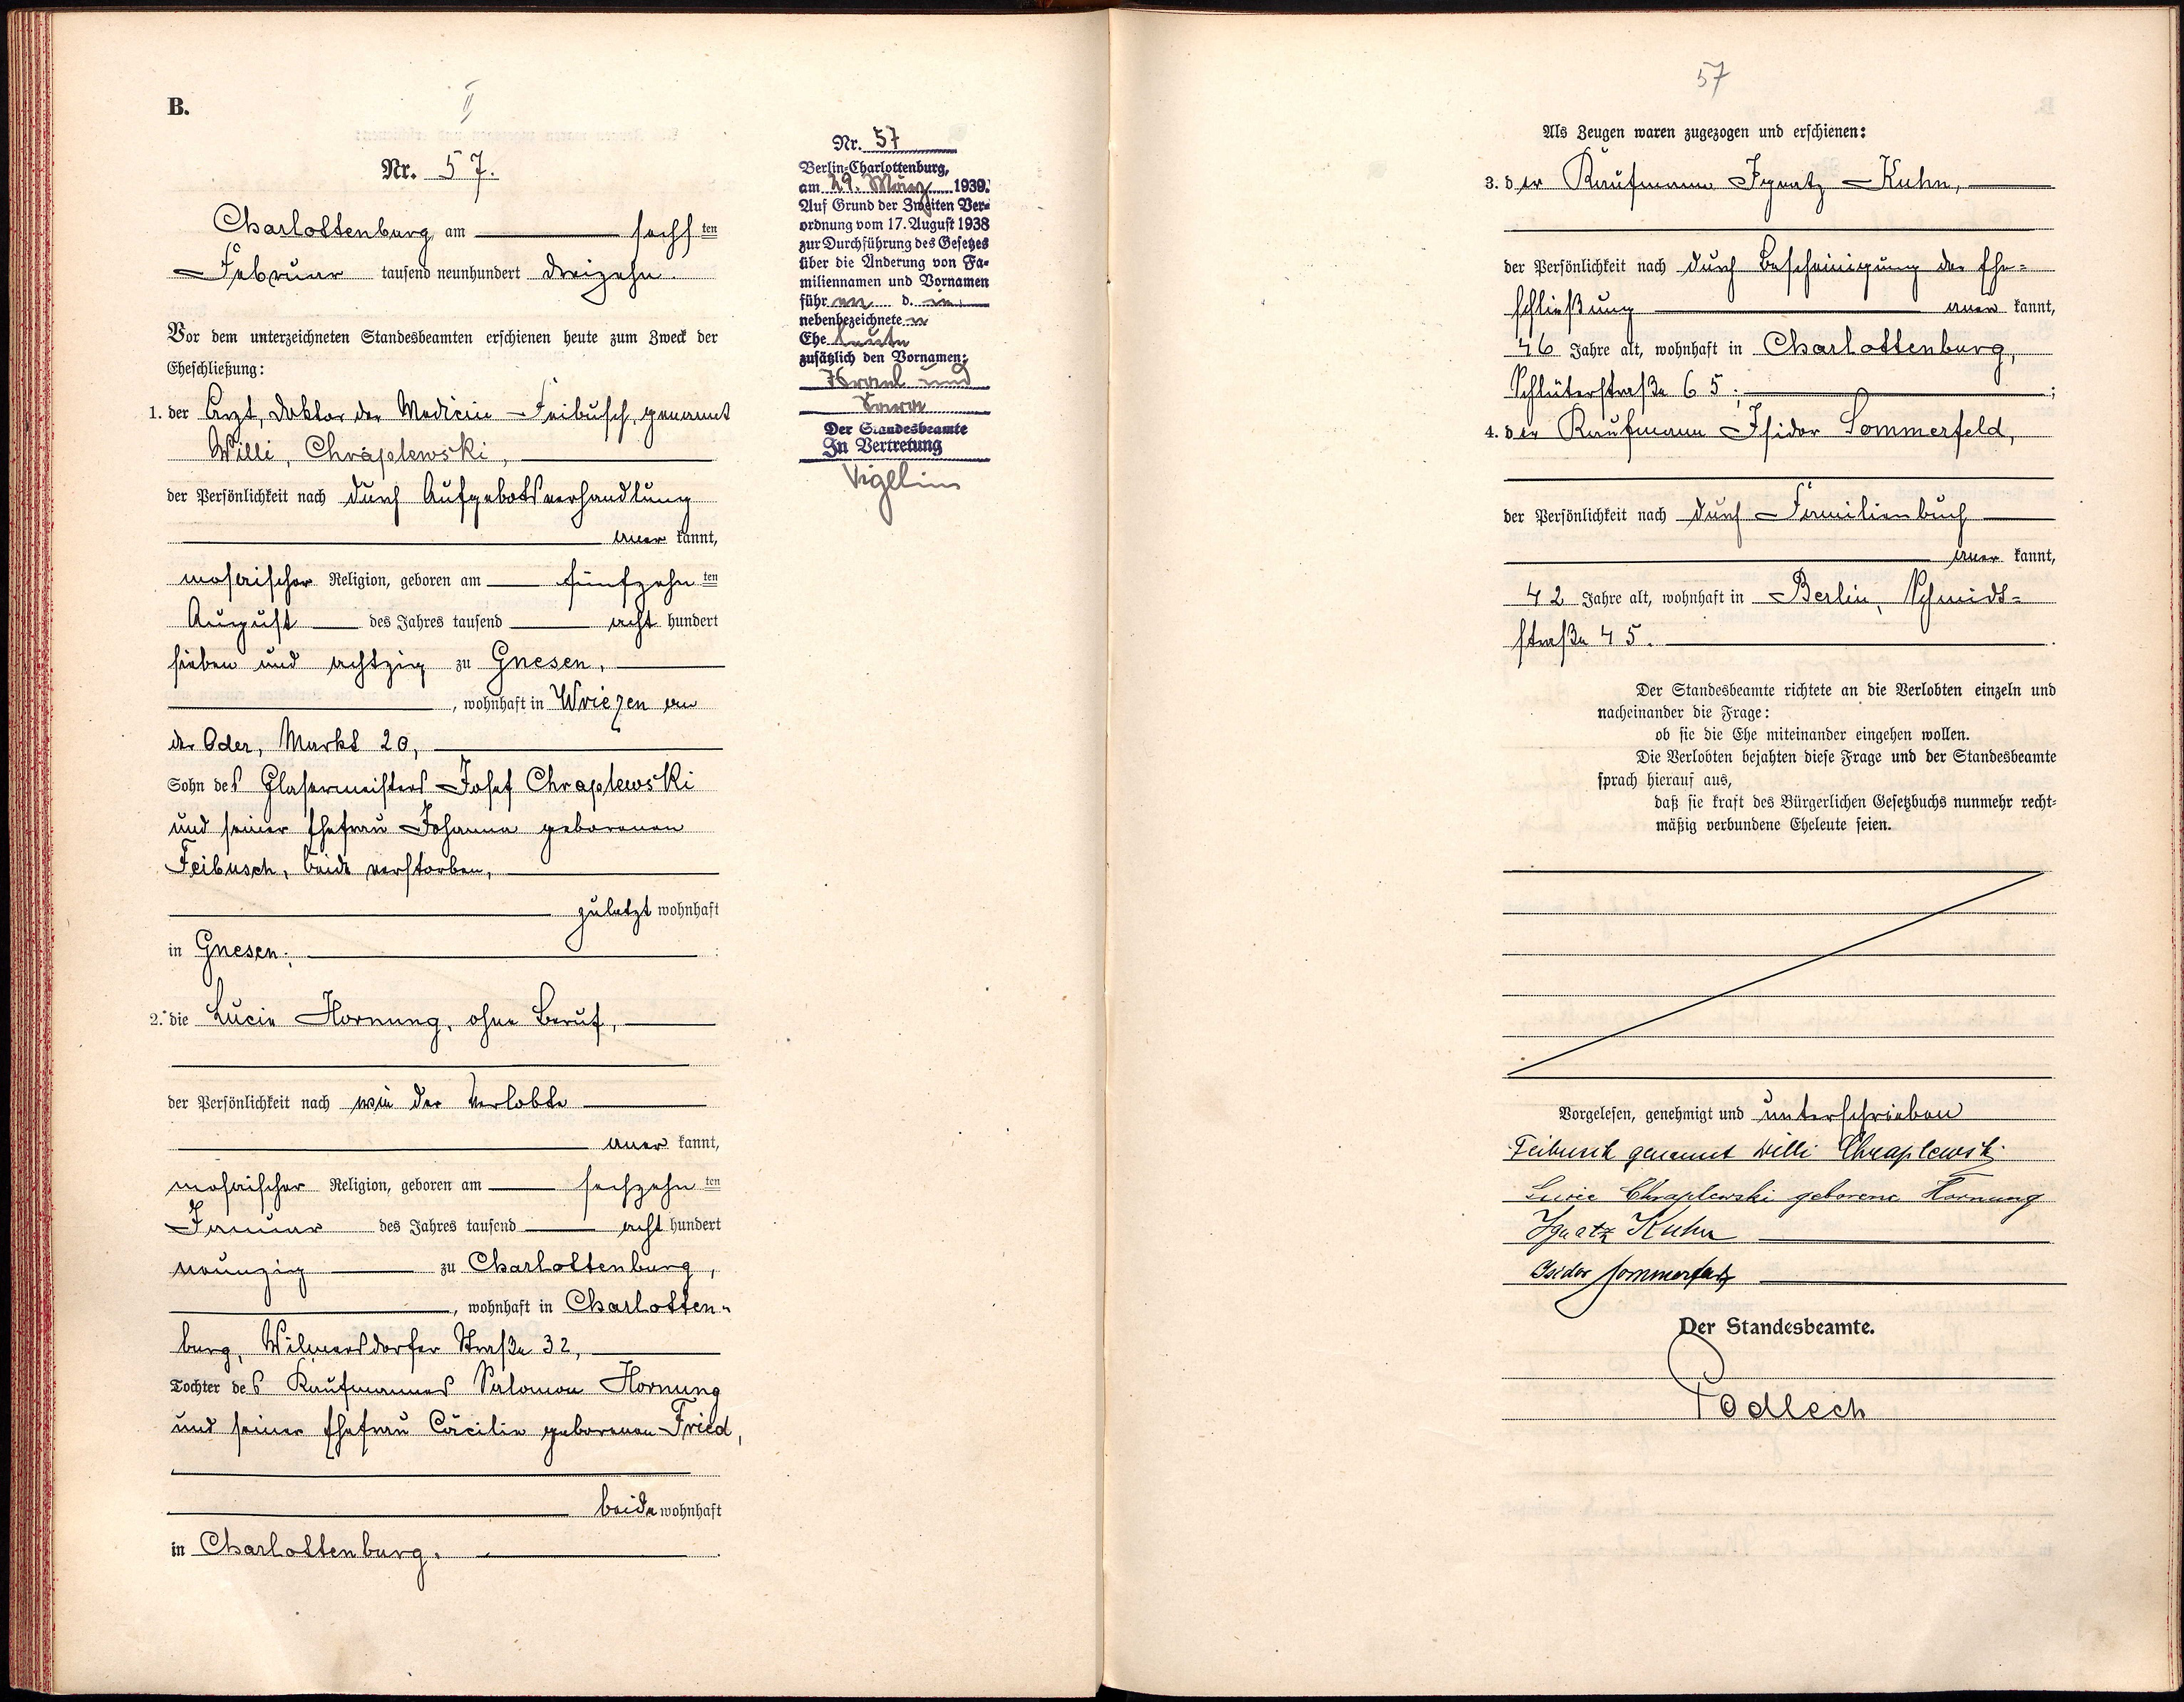 B.
II
Nr. 57.
Charlottenburg am sechsten
Februar tausend neunhundert dreizehn.
Vor dem unterzeichneten Standesbeamten erschienen heute zum Zweck der
Eheschließung:
1. der Arzt, Doktor der Medicin Feibusch, genannt
Willi, Chraplewski,
der Persönlichkeit nach durch Aufgebotsverhandlung
anerkannt,
mosaischer Religion, geboren am fünfzehnten
August des Jahres tausend achthundert
sieben und achtzig zu Gnesen,
, wohnhaft in Wriezen an
der Oder, Markt 20,
Sohn des Glasermeisters Josef Chraplewski
und seiner Ehefrau Johanna geborenen
Feibusch, beide verstorben,
zuletzt wohnhaft
in Gnesen;
2. die Lucie Hornung, ohne Beruf,
der Persönlichkeit nach wie der Verlobte
anerkannt,
mosaischer Religion, geboren am sechzehnten
Januar des Jahres tausend achthundert
neunzig zu Charlottenburg,
, wohnhaft in Charlotten-
burg, Wilmersdorfer Straße 32,
Tochter des Kaufmannes Salomon Hornung
und seiner Ehefrau Cäcilie geborenen Fried,
beide wohnhaft
in Charlottenburg.
Nr. 57
Berlin-Charlottenburg,
am 29. März 1939.
Auf Grund der Zweiten Ver-
ordnung vom 17. August 1938
zur Durchführung des Gesetzes
über die Änderung von Fa-
miliennamen und Vornamen
führen d. ie
nebenbezeichneten
Eheleute
zusätzlich den Vornamen:
Israel und
Sara
Der Standesbeamte
In Vertretung
Vigelius
57
Als Zeugen waren zugezogen und erschienen:
3. der Kaufmann Ignatz Kuhn,
der Persönlichkeit nach durch Bescheinigung der Ehe-
schließung anerkannt,
46 Jahre alt, wohnhaft in Charlottenburg,
Schlüterstraße 65;
4. der Kaufmann Isidor Sommerfeld,
der Persönlichkeit nach durch Familienbuch
anerkannt,
42 Jahre alt, wohnhaft in Berlin, Schmid-
straße 45.
Der Standesbeamte richtete an die Verlobten einzeln und
nacheinander die Frage:
ob sie die Ehe miteinander eingehen wollen.
Die Verlobten bejahten diese Frage und der Standesbeamte
sprach hierauf aus,
daß sie kraft des Bürgerlichen Gesetzbuchs nunmehr recht-
mäßig verbundene Eheleute seien.
Vorgelesen, genehmigt und unterschrieben
Feibusch genannt Willi Chraplewski
Lucie Chraplewski geborene Hornung
Ignatz Kuhn
Isidor Sommerfeld
Der Standesbeamte.
Podlech